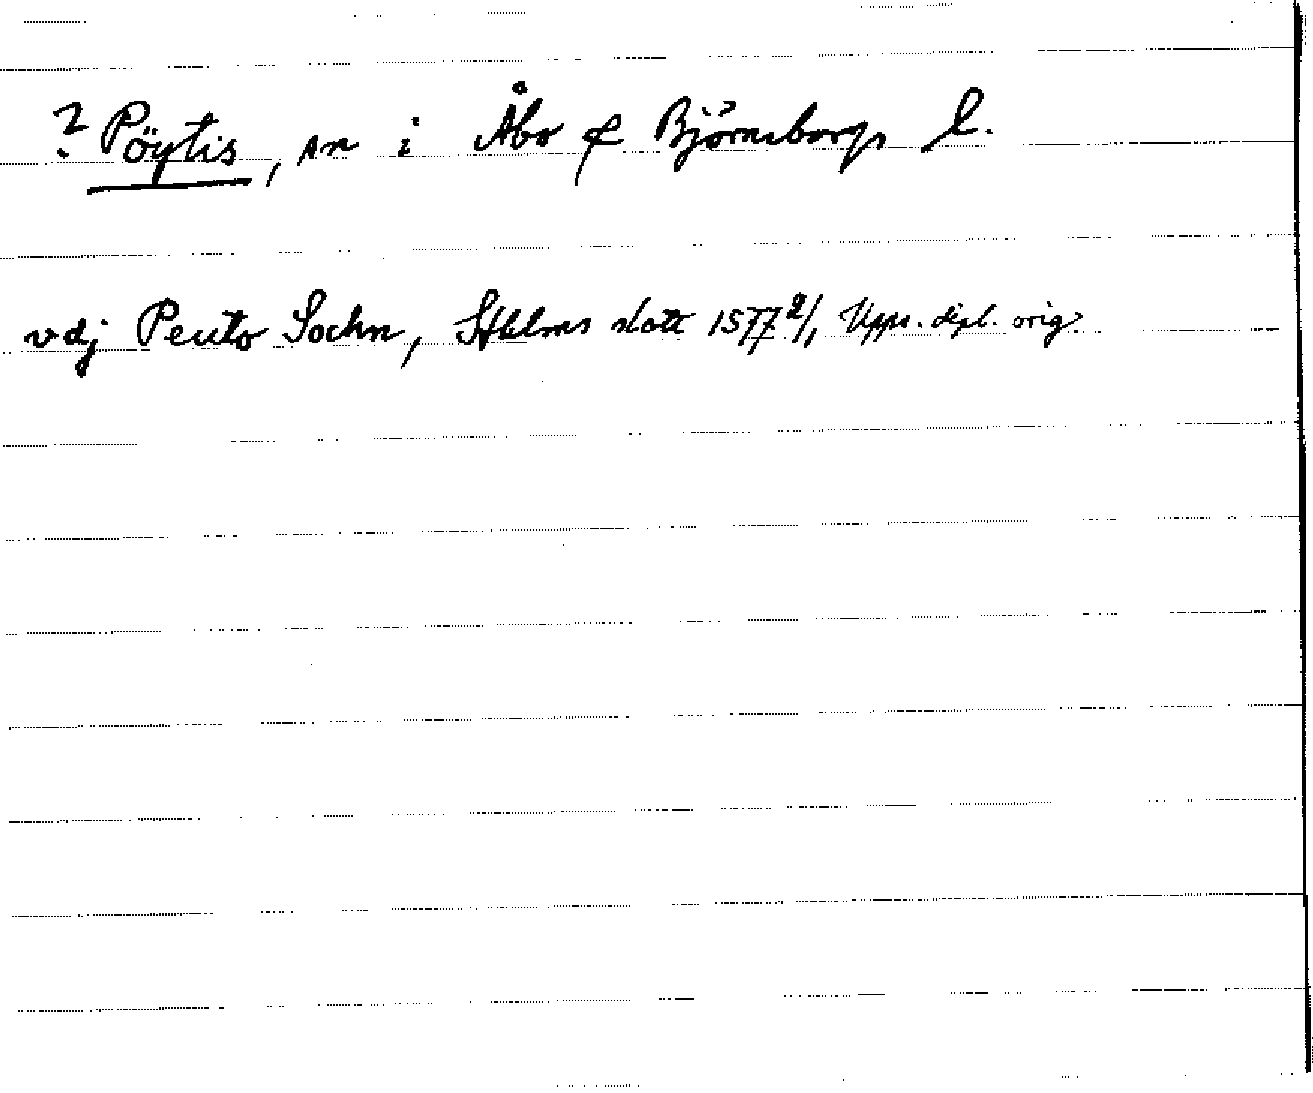 ? Pöytis, sn i Åbo & Björneborgs l.
vdj Peuto Sochn, Sthlms slott 1577 2/1 Upps. dipl. orig.